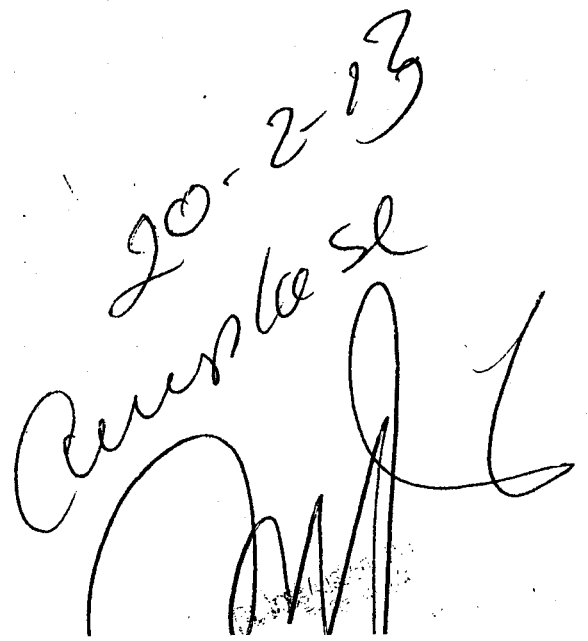 20-2-13
Cumplase